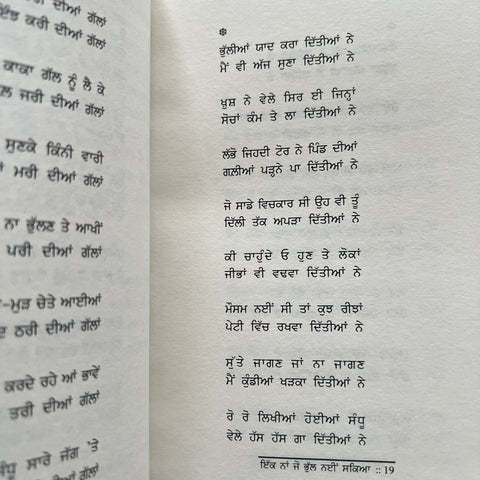 ਇੰਝ ਕਰੀ ਦੀਆਂ ਗੱਲਾਂ
ਕਾਕਾ ਗੱਲ ਨੂੰ ਲੈ ਕੇ
ਜਰੀ ਦੀਆਂ ਗੱਲਾਂ
ਸੁਣਕੇ ਕਿੰਨੀ ਵਾਰੀ
ਮਰੀ ਦੀਆਂ ਗੱਲਾਂ
ਨਾ ਭੁੱਲਣ ਤੇ ਆਖੀਂ
ਪਰੀ ਦੀਆਂ ਗੱਲਾਂ
-ਮੁੜ ਚੇਤੇ ਆਈਆਂ
ਠਰੀ ਦੀਆਂ ਗੱਲਾਂ
ਕਰਦੇ ਰਹੇ ਆਂ ਭਾਵੇਂ
ਤਰੀ ਦੀਆਂ ਗੱਲਾਂ
ਸੰਧੂ ਸਾਰੇ ਜੱਗ 'ਤੇ
ਦੀਆਂ ਗੱਲਾਂ
ਭੁੱਲੀਆਂ ਯਾਦ ਕਰਾ ਦਿੱਤੀਆਂ ਨੇ
ਮੈਂ ਵੀ ਅੱਜ ਸੁਣਾ ਦਿੱਤੀਆਂ ਨੇ
ਖ਼ੁਸ਼ ਨੇ ਵੇਲੇ ਸਿਰ ਈ ਜਿਨ੍ਹਾਂ
ਸੋਚਾਂ ਕੰਮ ਤੇ ਲਾ ਦਿੱਤੀਆਂ ਨੇ
ਲੱਭੋ ਜਿਹਦੀ ਟੋਰ ਨੇ ਪਿੰਡ ਦੀਆਂ
ਗਲੀਆਂ ਪੜ੍ਹਨੇ ਪਾ ਦਿੱਤੀਆਂ ਨੇ
ਜੋ ਸਾਡੇ ਵਿਚਕਾਰ ਸੀ ਉਹ ਵੀ ਤੂੰ
ਦਿੱਲੀ ਤੱਕ ਅਪੜਾ ਦਿੱਤੀਆਂ ਨੇ
ਕੀ ਚਾਹੁੰਦੇ ਓ ਹੁਣ ਤੇ ਲੋਕਾਂ
ਜੀਭਾਂ ਵੀ ਵਢਵਾ ਦਿੱਤੀਆਂ ਨੇ
ਮੌਸਮ ਨਈਂ ਸੀ ਤਾਂ ਕੁਝ ਰੀਝਾਂ
ਪੇਟੀ ਵਿੱਚ ਰਖਵਾ ਦਿੱਤੀਆਂ ਨੇ
ਸੁੱਤੇ ਜਾਗਣ ਜਾਂ ਨਾ ਜਾਗਣ
ਮੈਂ ਕੁੰਡੀਆਂ ਖੜਕਾ ਦਿੱਤੀਆਂ ਨੇ
ਰੋ ਰੋ ਲਿਖੀਆਂ ਹੋਈਆਂ ਸੰਧੂ
ਵੇਲੇ ਹੱਸ ਹੱਸ ਗਾ ਦਿੱਤੀਆਂ ਨੇ
ਇੱਕ ਨਾਂ ਜੋ ਭੁੱਲ ਨਈਂ ਸਕਿਆ :: 19